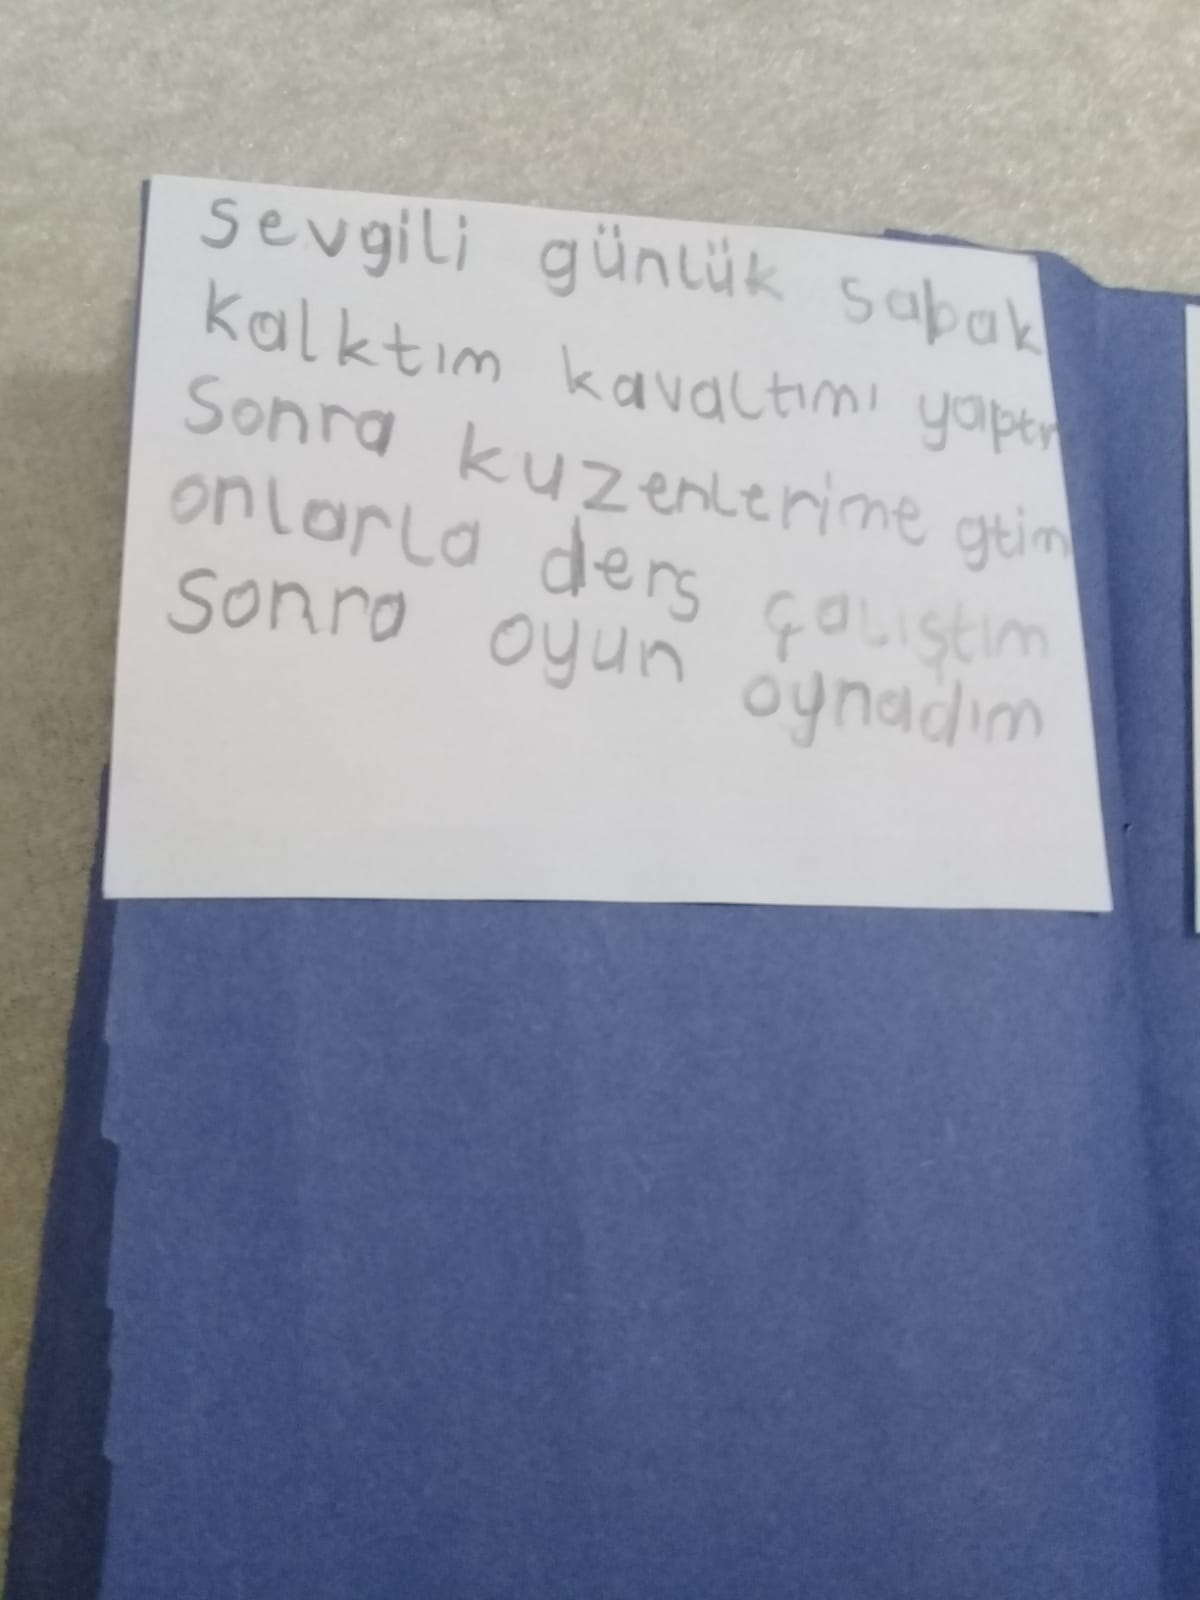 sevgili günlük sabak
kalktım kavaltımı yaptı
Sonra kuzenlerime gtim
onlarla ders çalıştım
Sonra oyun oynadım